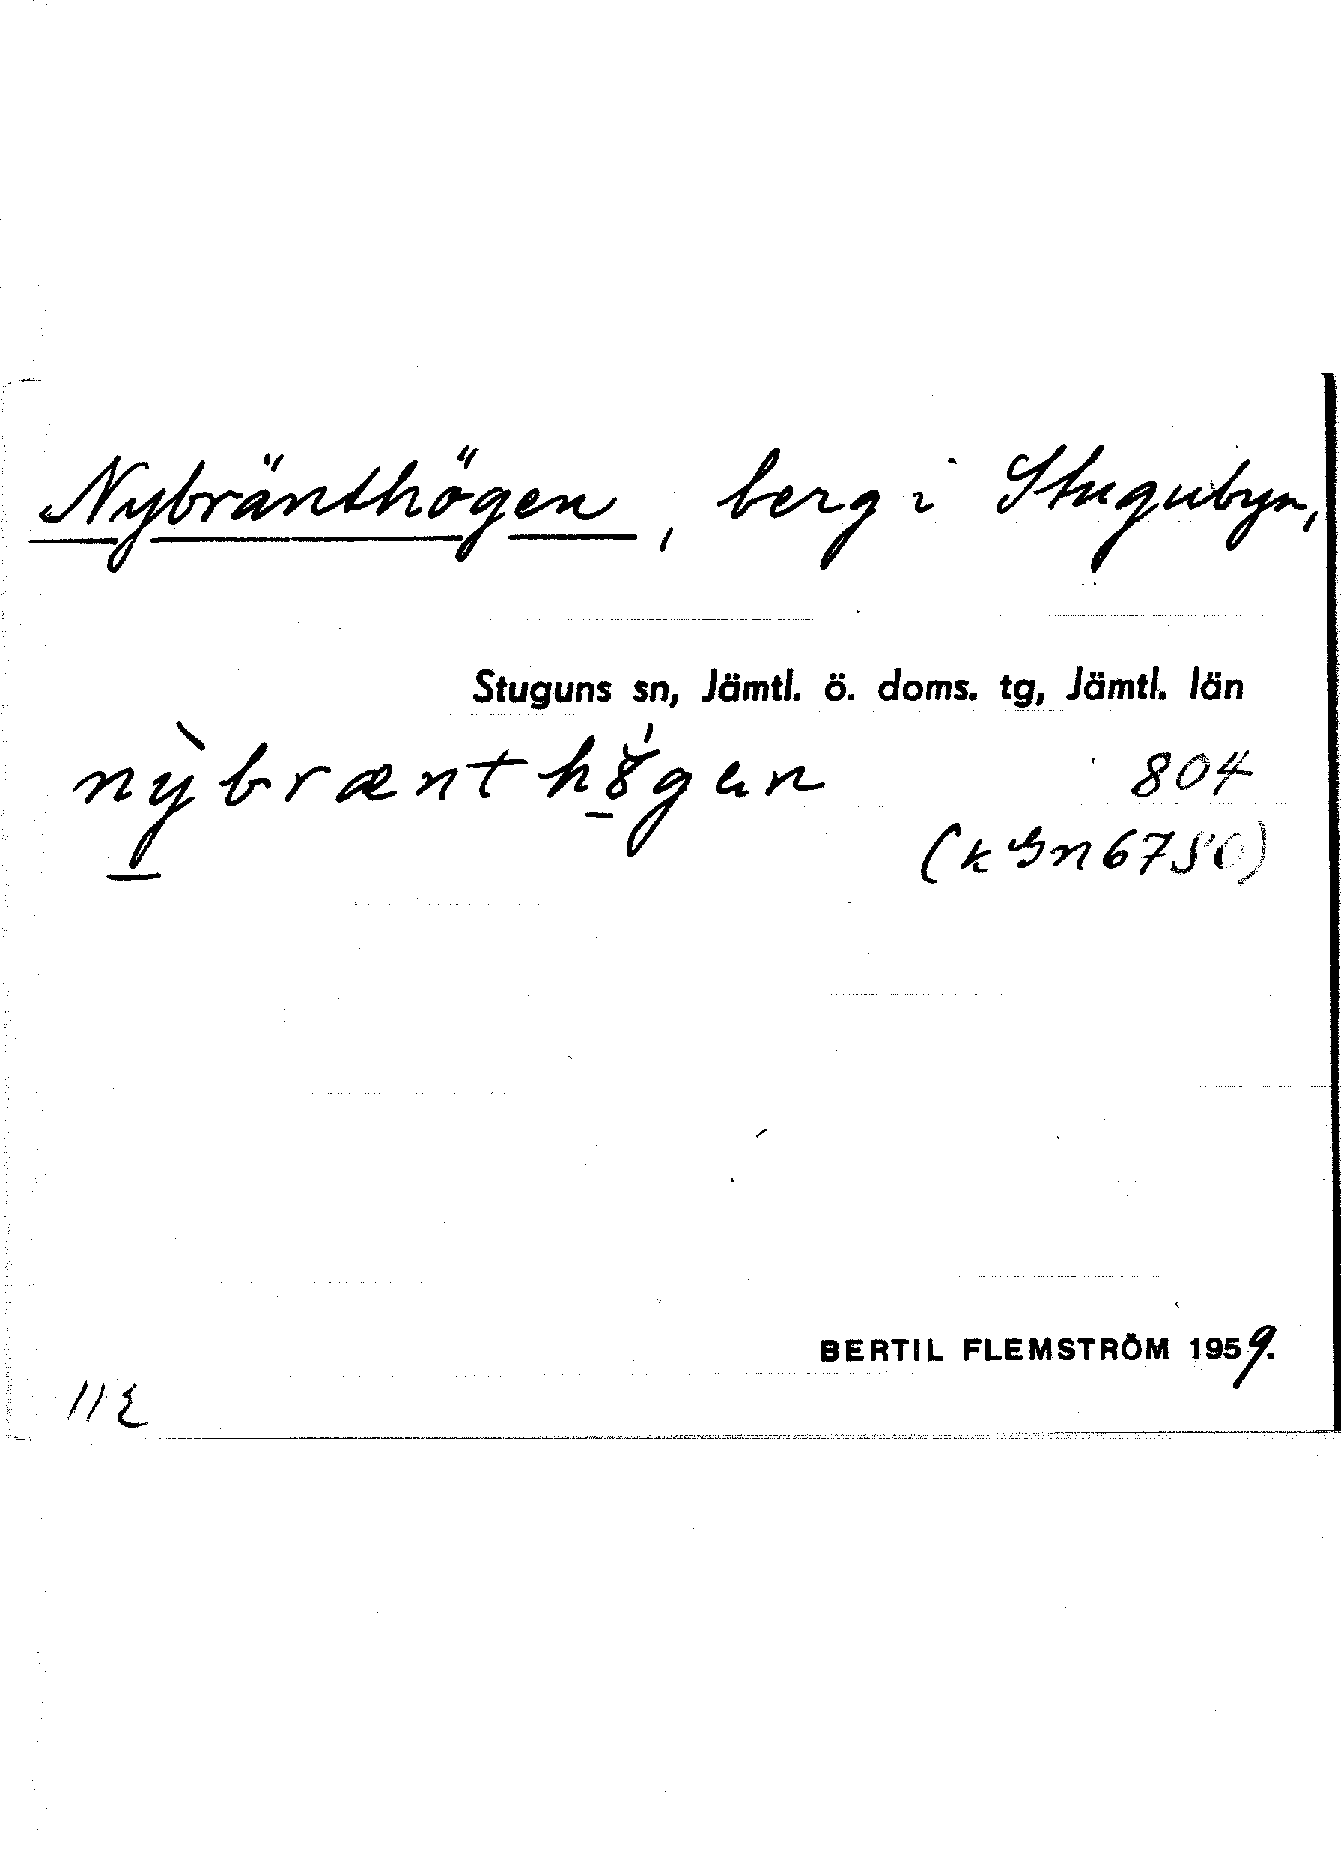 Nybränthögen, berg i Stugubyn,
Stuguns sn, Jämtl. ö. doms. tg, Jämtl. län
nỳbrænthǿgen 804
BERTIL FLEMSTRÖM 1959.